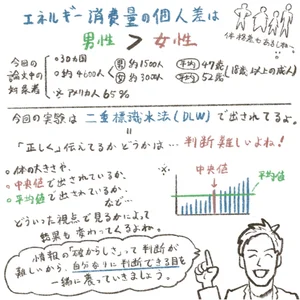 エネルギー消費量の個人差は
男性 > 女性
体格差もあるしね〜
今回の論文中の対象者
○30カ国
○約4600人
男 約1500人 平均 47歳
女 約3000人 平均 52歳
(18歳以上の成人)
※アメリカ人65%
今回の実験は 二重標識水法(DLW)で出されてるよ。
「正しく」伝えてるかどうかは…判断難しいよね!
○体の大きさや、
○中央値で出されているか、
○平均値で出されているか、
など…
どういった視点で見るかによって
結果も変わってくるよね。
中央値
平均値
情報の"確からしさ"って判断が
難しいから、自分なりに判断できる目を
一緒に養っていきましょう。